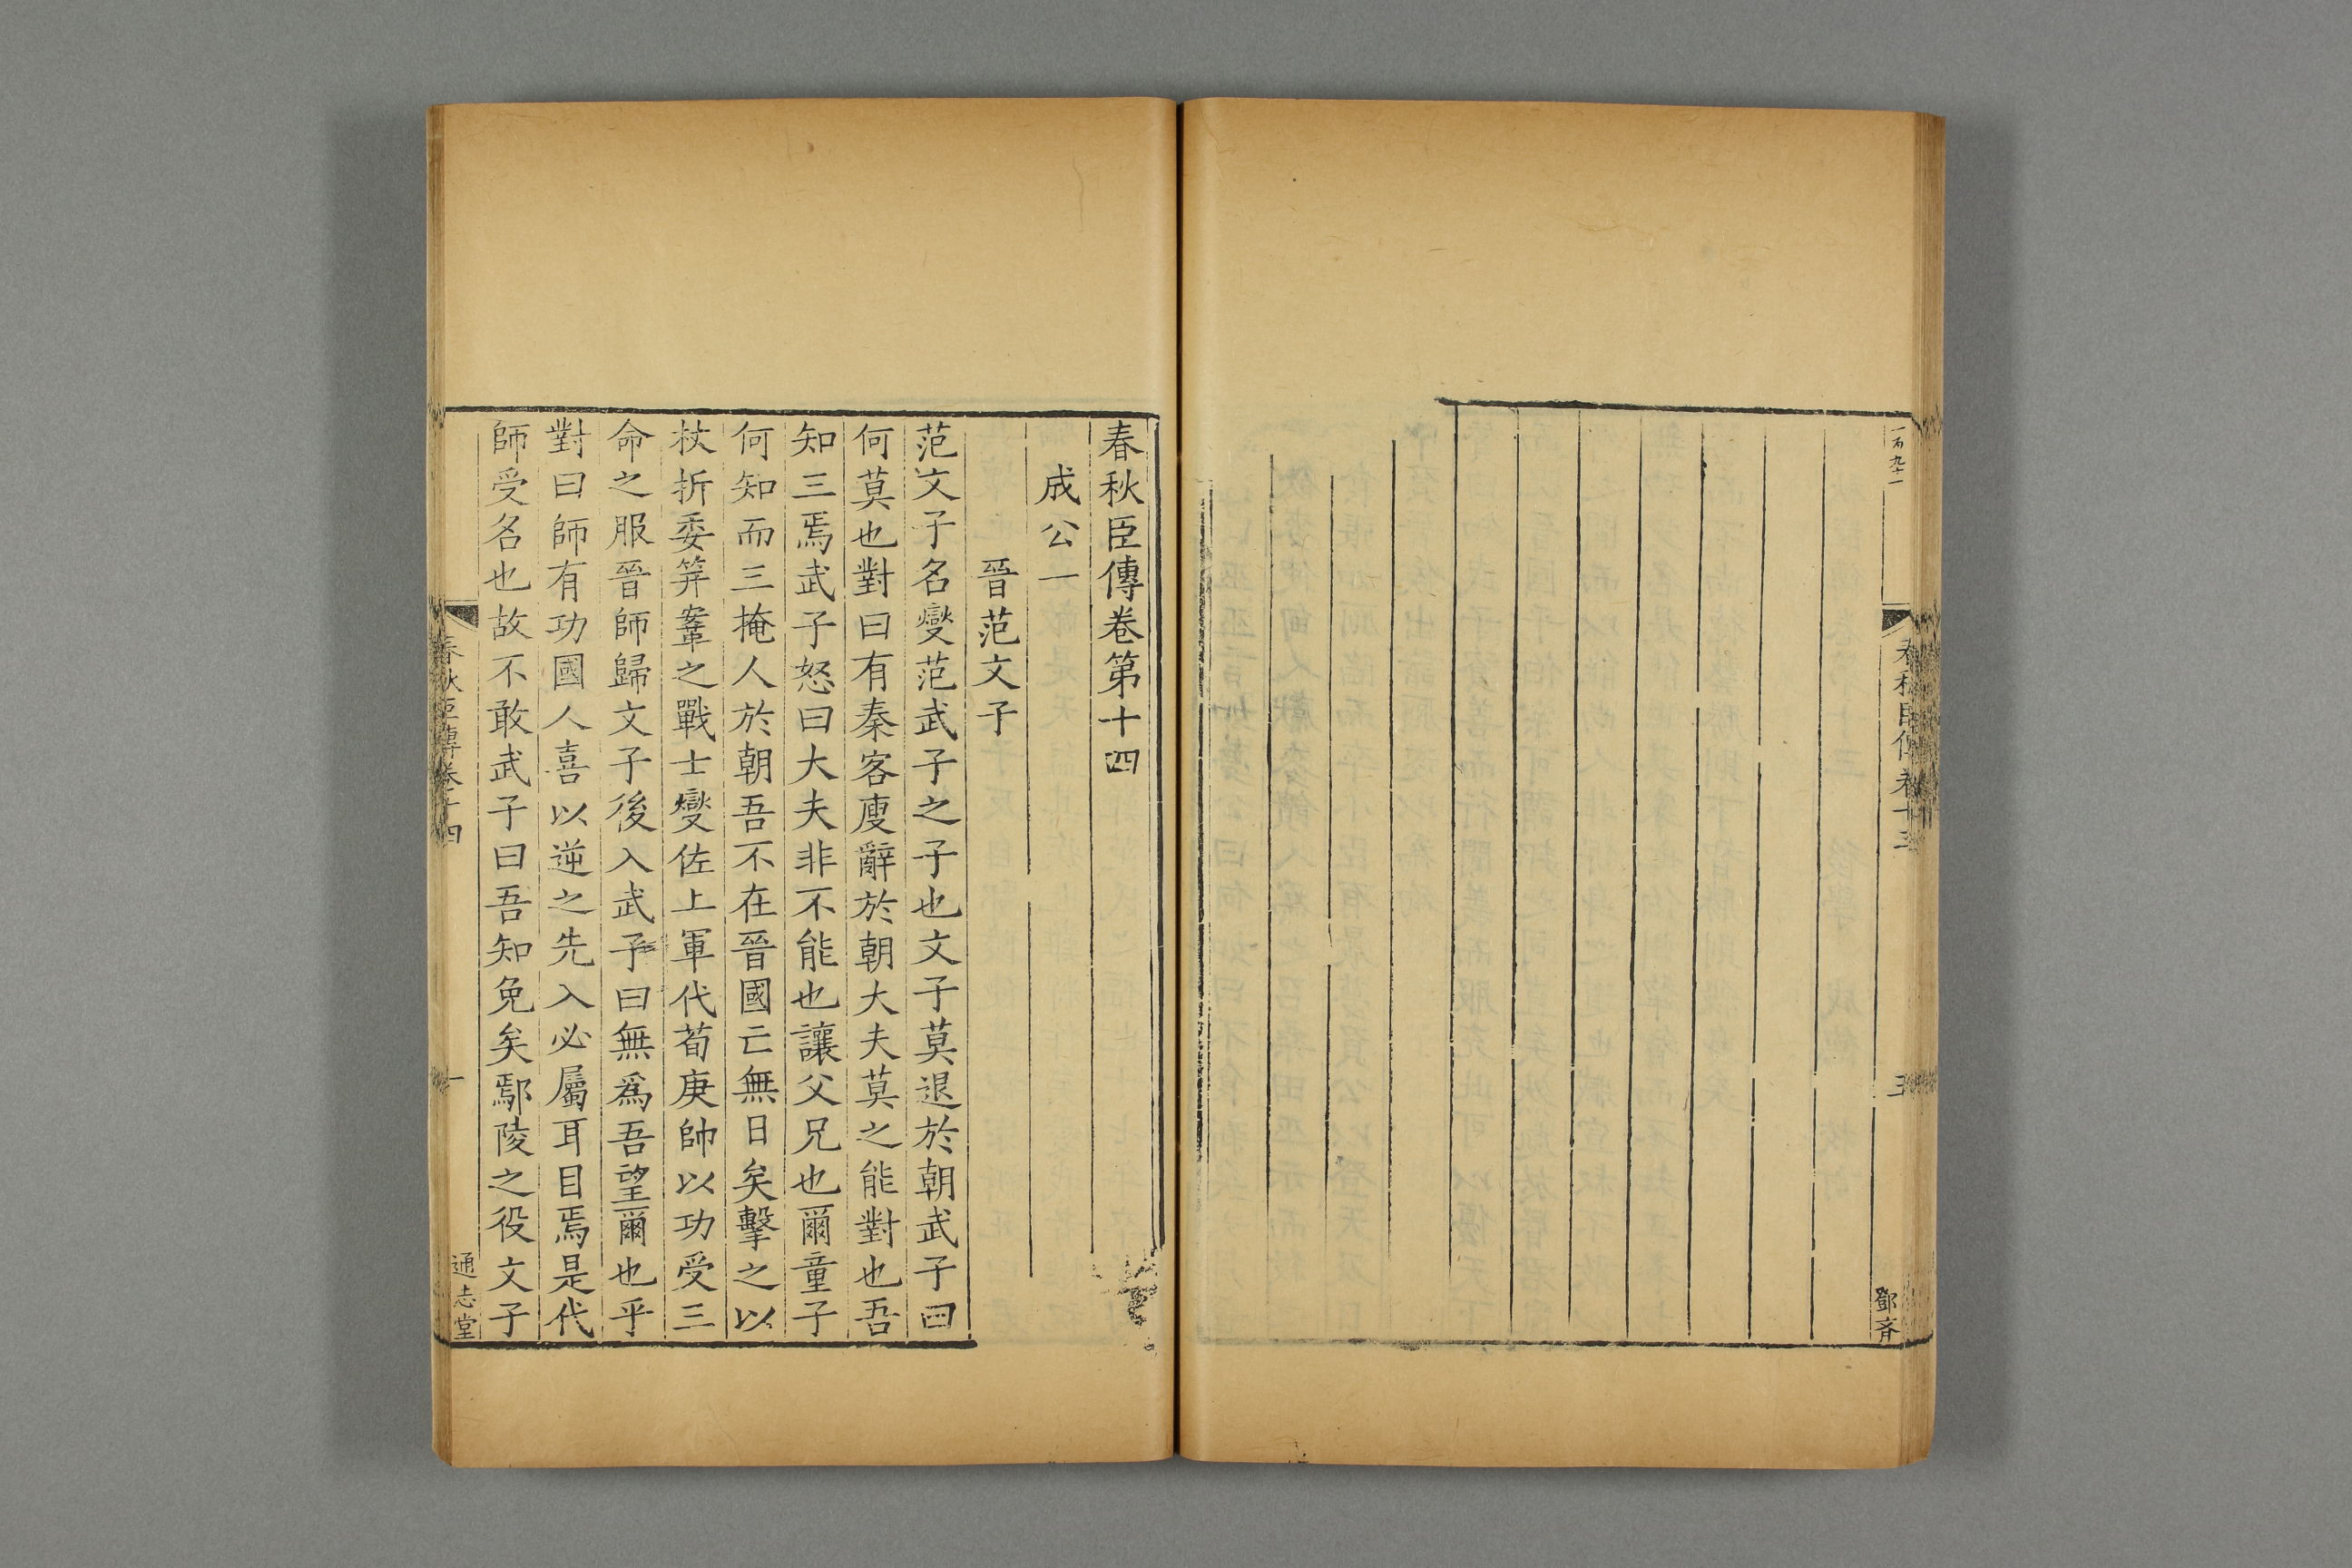 一百九十一
春秋臣傳卷十三
三
鄧斉
春秋臣傳卷第十四
成公一
晉范文子
范文子名燮范武子之子也文子莫退於朝武子曰
何莫也對曰有秦客廋辭於朝大夫莫之能對也吾
知三焉武子怒曰大夫非不能也讓父兄也爾童子
何知而三掩人於朝吾不在晉國亡無日矣擊之以
杖折委笄鞌之戰士燮佐上軍代荀庚帥以功受三
命之服晉師歸文子後入武子曰無爲吾望爾也乎
對曰師有功國人喜以逆之先入必屬耳目焉是代
師受名也故不敢武子曰吾知免矣鄢陵之役文子
春秋臣傳卷十四
一
通志堂